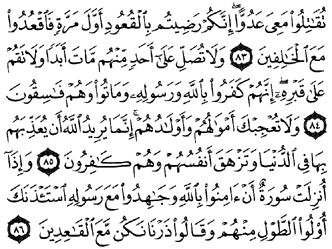 تُقَٰتِلُوا۟ مَعِىَ عَدُوًّا ۖ إِنَّكُمْ رَضِيتُم بِٱلْقُعُودِ أَوَّلَ مَرَّةٍ فَٱقْعُدُوا۟
مَعَ ٱلْخَٰلِفِينَ ٨٣ وَلَا تُصَلِّ عَلَىٰٓ أَحَدٍ مِّنْهُم مَّاتَ أَبَدًا وَلَا تَقُمْ
عَلَىٰ قَبْرِهِۦٓ ۖ إِنَّهُمْ كَفَرُوا۟ بِٱللَّهِ وَرَسُولِهِۦ وَمَاتُوا۟ وَهُمْ فَٰسِقُونَ
٨٤ وَلَا تُعْجِبْكَ أَمْوَٰلُهُمْ وَأَوْلَٰدُهُمْ ۚ إِنَّمَا يُرِيدُ ٱللَّهُ أَن يُعَذِّبَهُم
بِهَا فِى ٱلدُّنْيَا وَتَزْهَقَ أَنفُسُهُمْ وَهُمْ كَٰفِرُونَ ٨٥ وَإِذَآ
أُنزِلَتْ سُورَةٌ أَنْ ءَامِنُوا۟ بِٱللَّهِ وَجَٰهِدُوا۟ مَعَ رَسُولِهِ ٱسْتَـْٔذَنَكَ
أُو۟لُوا۟ ٱلطَّوْلِ مِنْهُمْ وَقَالُوا۟ ذَرْنَا نَكُن مَّعَ ٱلْقَٰعِدِينَ ٨٦